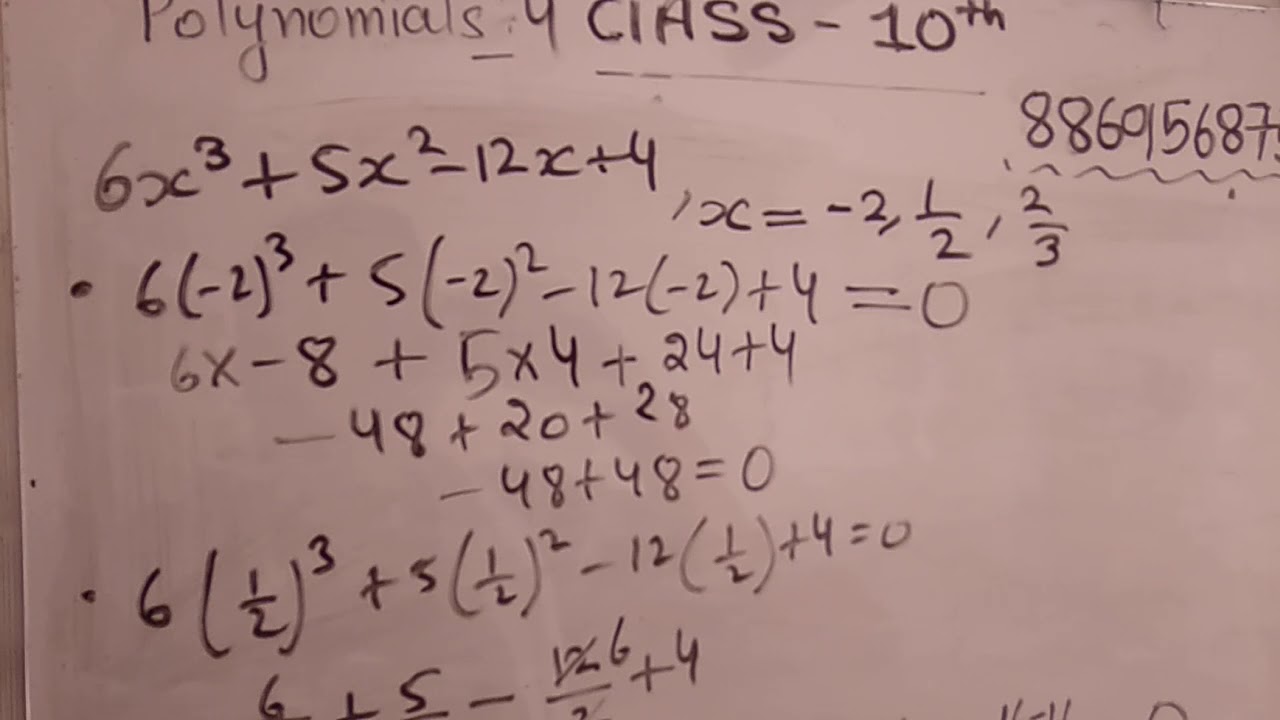 Polynomials-4 ClASS - 10th
886915687
6x³ + 5x² - 12x + 4, x = -2, 1/2, 2/3
• 6(-2)³ + 5(-2)² - 12(-2) + 4 = 0
6x - 8 + 5x4 + 24 + 4
- 48 + 20 + 28
- 48 + 48 = 0
• 6(1/2)³ + 5(1/2)² - 12(1/2) + 4 = 0
6 + 5 - 12 6 + 4